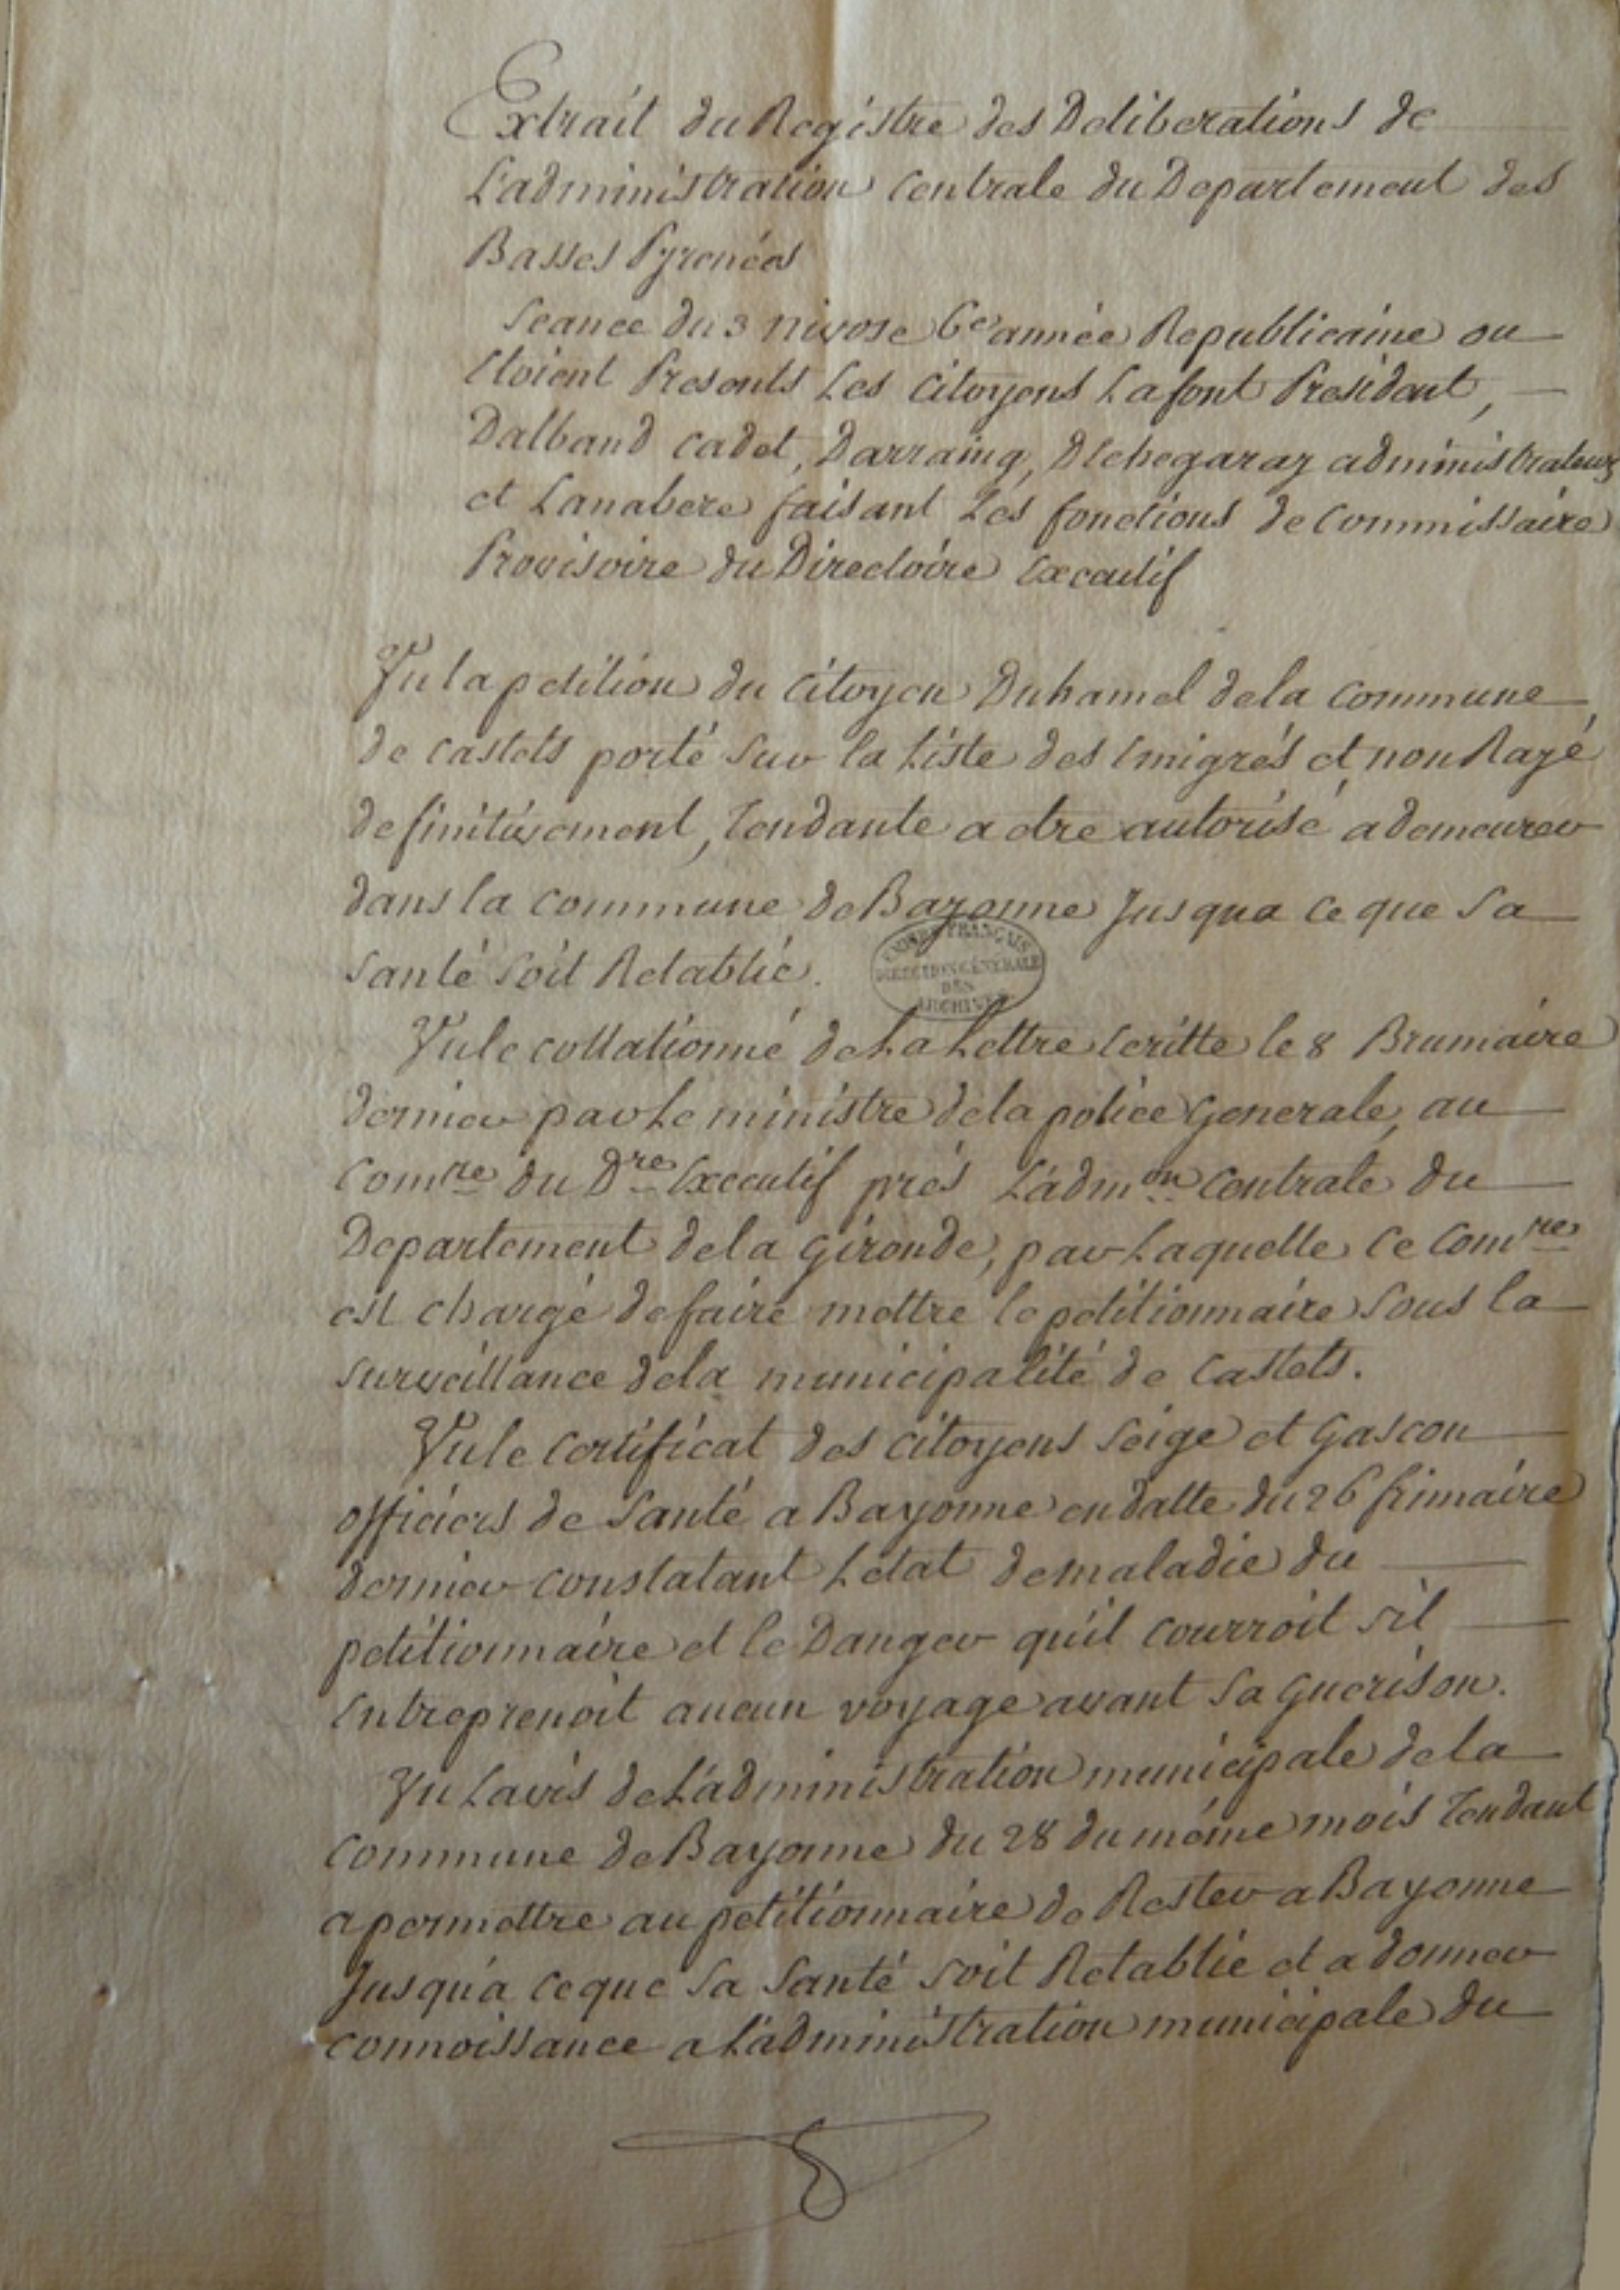 Extrait du Registre des Deliberations de
L'administration Centrale du Departement des
Basses Pyrenées
Seance du 3 nivose 6e année Republicaine ou
Etoient Presents Les Citoyens Lafont President,
Dalband cadet, Darraing, Detchegaray administrateurs
et Lanabere faisant Les fonctions de Commissaire
Provisoire du Directoire Executif
Vu la petition du Citoyen Duhamel de la Commune
de Castets porté sur la Liste des Emigrés et non Rayé
definitivement, Tendante a etre autorisé a demeurer
dans la Commune de Bayonne Jusqua ce que Sa
Santé Soit Retablie.
EMPIRE FRANÇAIS
DIRECTION GÉNÉRALE
DES
ARCHIVES
Vu le collationné de La Lettre Ecritte le 8 Brumaire
dernier par Le ministre de la police Generale, au
Comre du Dre Executif prés L'admon Centrale du
Departement de la Gironde, par Laquelle Ce Comre
est chargé de faire mettre le petitionnaire Sous la
Surveillance de la municipalité de Castets.
Vu le Certificat des Citoyens Seige et Gascon
officiers de Santé a Bayonne en datte du 26 frimaire
dernier constatant L'etat de maladie du
petitionnaire et le Danger qu'il courroit s'il
Entreprenoit aucun voyage avant Sa Guerison.
Vu Lavis de L'administration municipale de la
Commune de Bayonne du 28 du même mois Tendant
a permettre au petitionnaire de Rester a Bayonne
Jusqu'a ceque Sa Santé Soit Retablie et a donner
connoissance a L'administration municipale du